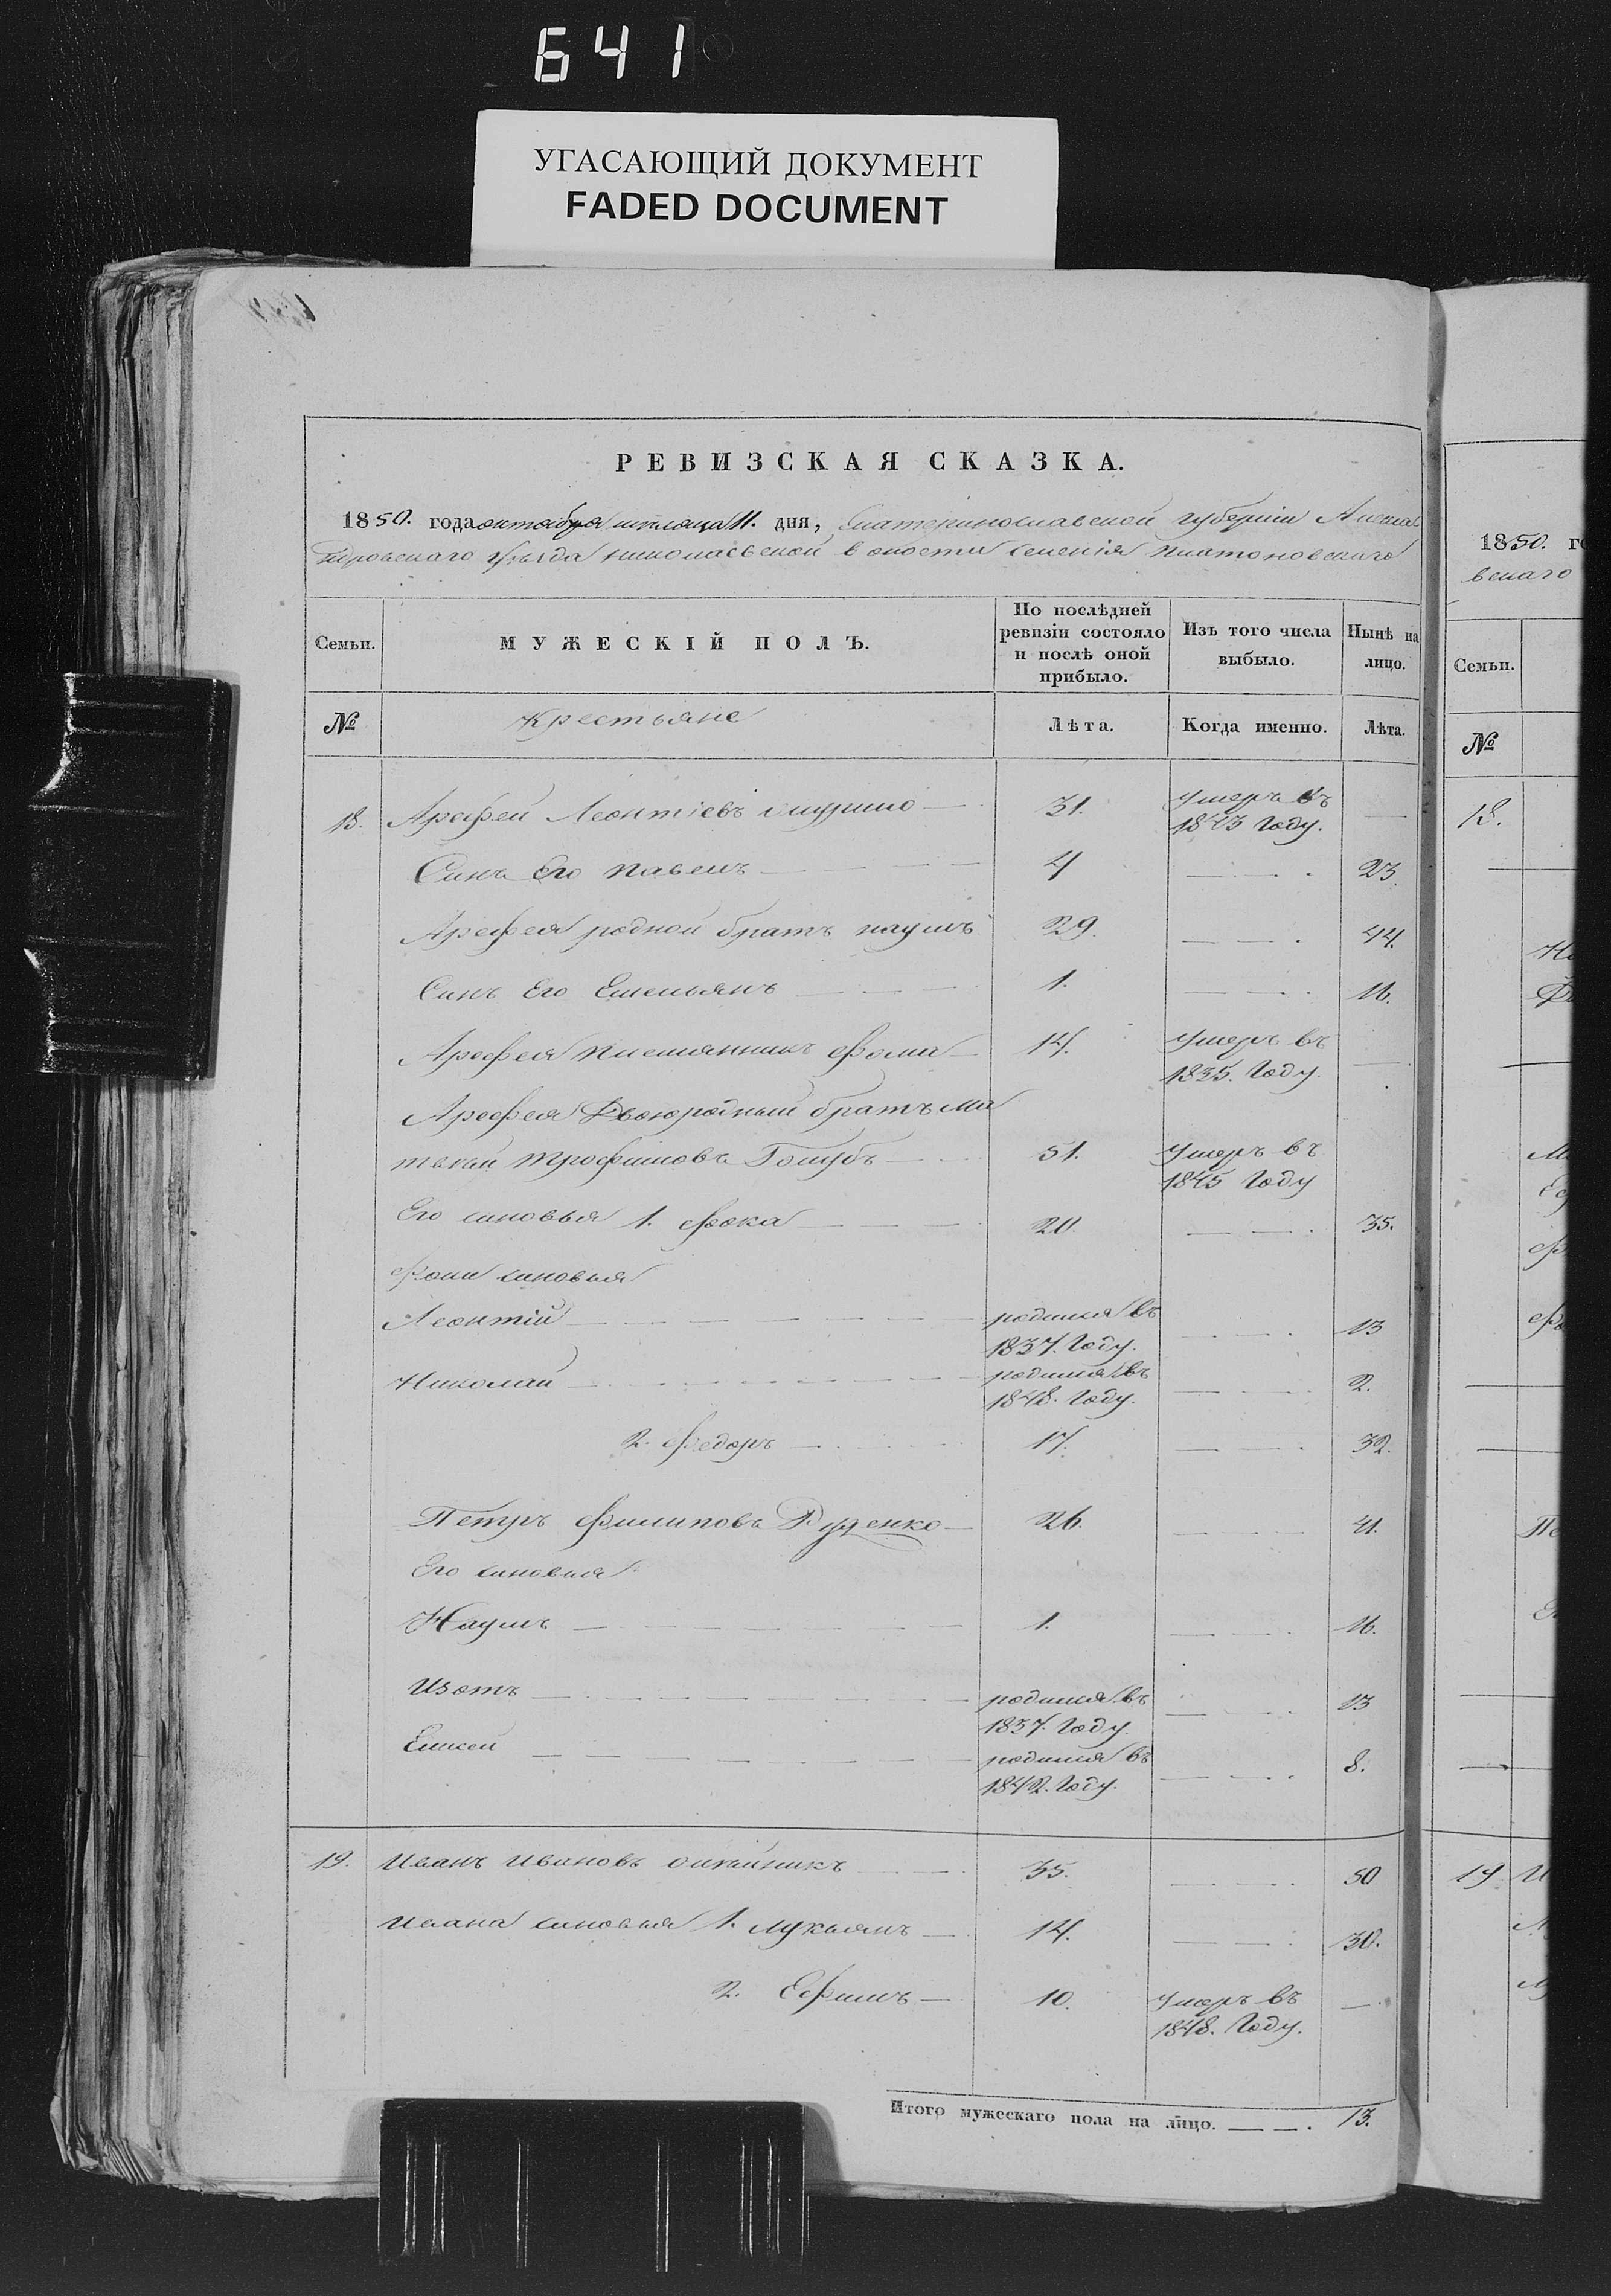 641
УГАСАЮЩИЙ ДОКУМЕНТ
FADED DOCUMENT
РЕВИЗСКАЯ СКАЗКА.
1850. года октабря месяца 11. дня, Екатеринославской губерніи Алексан
дровскаго уѣзда николаевской волости селенія платоновскаго
Семьи. МУЖЕСКІЙ ПОЛЪ. По послѣдней ревизіи состояло и послѣ оной прибыло. Изъ того числа выбыло. Нынѣ на лицо.
№ Крестьяне Лѣта. Когда именно. Лѣта.
Арефей Леонтіевъ 31. умеръ въ 1843 Году. —
Синъ Его павелъ 4 — 23
Арефея родной братъ наумъ 29. — 44.
Синъ Его Емельянъ 1. — 16.
Арефея племянникъ фома 14. умеръ въ 1835. Году. —
Арефея Двоюродный братъ Ма
твей трофимовъ Голубъ 51. умеръ въ 1845 Году
Его синовья 1. фока 20. — 35.
фоки синовья
Леонтій родился въ 1837. Году. — 13
Николай родился въ 1848. Году. — 2.
2. федоръ 17. — 32.
Петръ филиповъ Руденко 26. — 41.
Его синовья
Наумъ 1. — 16.
Изотъ родился въ 1837. Году. — 13
Елисей родился въ 1842. Году. — 8.
19. Иванъ Ивановъ олейникъ 35. — 50
Ивана синовья 1. лукьянъ 14. — 30.
2. Ефимъ 10. умеръ въ 1848. Году. —
Итого мужескаго пола на лицо. 13.
1850. го
вскаго
Семьи.
№
18.
19 И